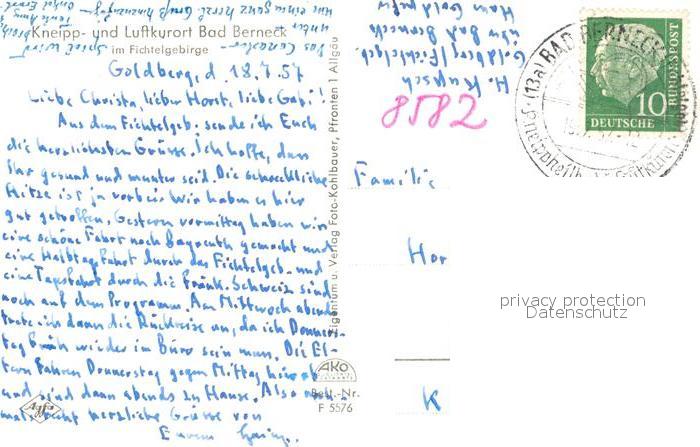 Kneipp- und Luftkurort Bad Berneck
im Fichtelgebirge
Goldberg, d. 18.7.57
Liebe Christa, lieber Horst, liebe Gabi!
Aus dem Fichtelgeb. sende ich Euch
die herzlichsten Grüsse. Ich hoffe, dass
Ihr gesund und munter seid. Die schreckliche
Hitze ist ja vorbei. Wir haben es hier
gut getroffen. Gestern vormittag haben wir
eine schöne Fahrt nach Bayreuth gemacht und
eine Halbtagsfahrt durch das Fichtelgeb. und
eine Tagesfahrt durch die Fränk. Schweiz sind
noch auf dem Programm. Am Mittwoch abend
trete ich dann die Rückreise an, da ich Donners-
tag früh wieder im Büro sein muss. Die El-
tern fahren Donnerstag gegen Mittag hier ab
und sind dann abends zu Hause. Also noch-
mals recht herzliche Grüsse von
Eurem
H. Kupsch
Goldberg/Fichtelgeb.
über Bad Berneck
Haus Gold
8582
(13a) BAD BERNECK
10
DEUTSCHE
BUNDESPOST
Familie
Hor
K
Eigentum u. Verlag Foto-Kohlbauer, Pfronten 1 Allgäu
AKO
Best.-Nr.
F 5576
Agfa
privacy protection
Datenschutz